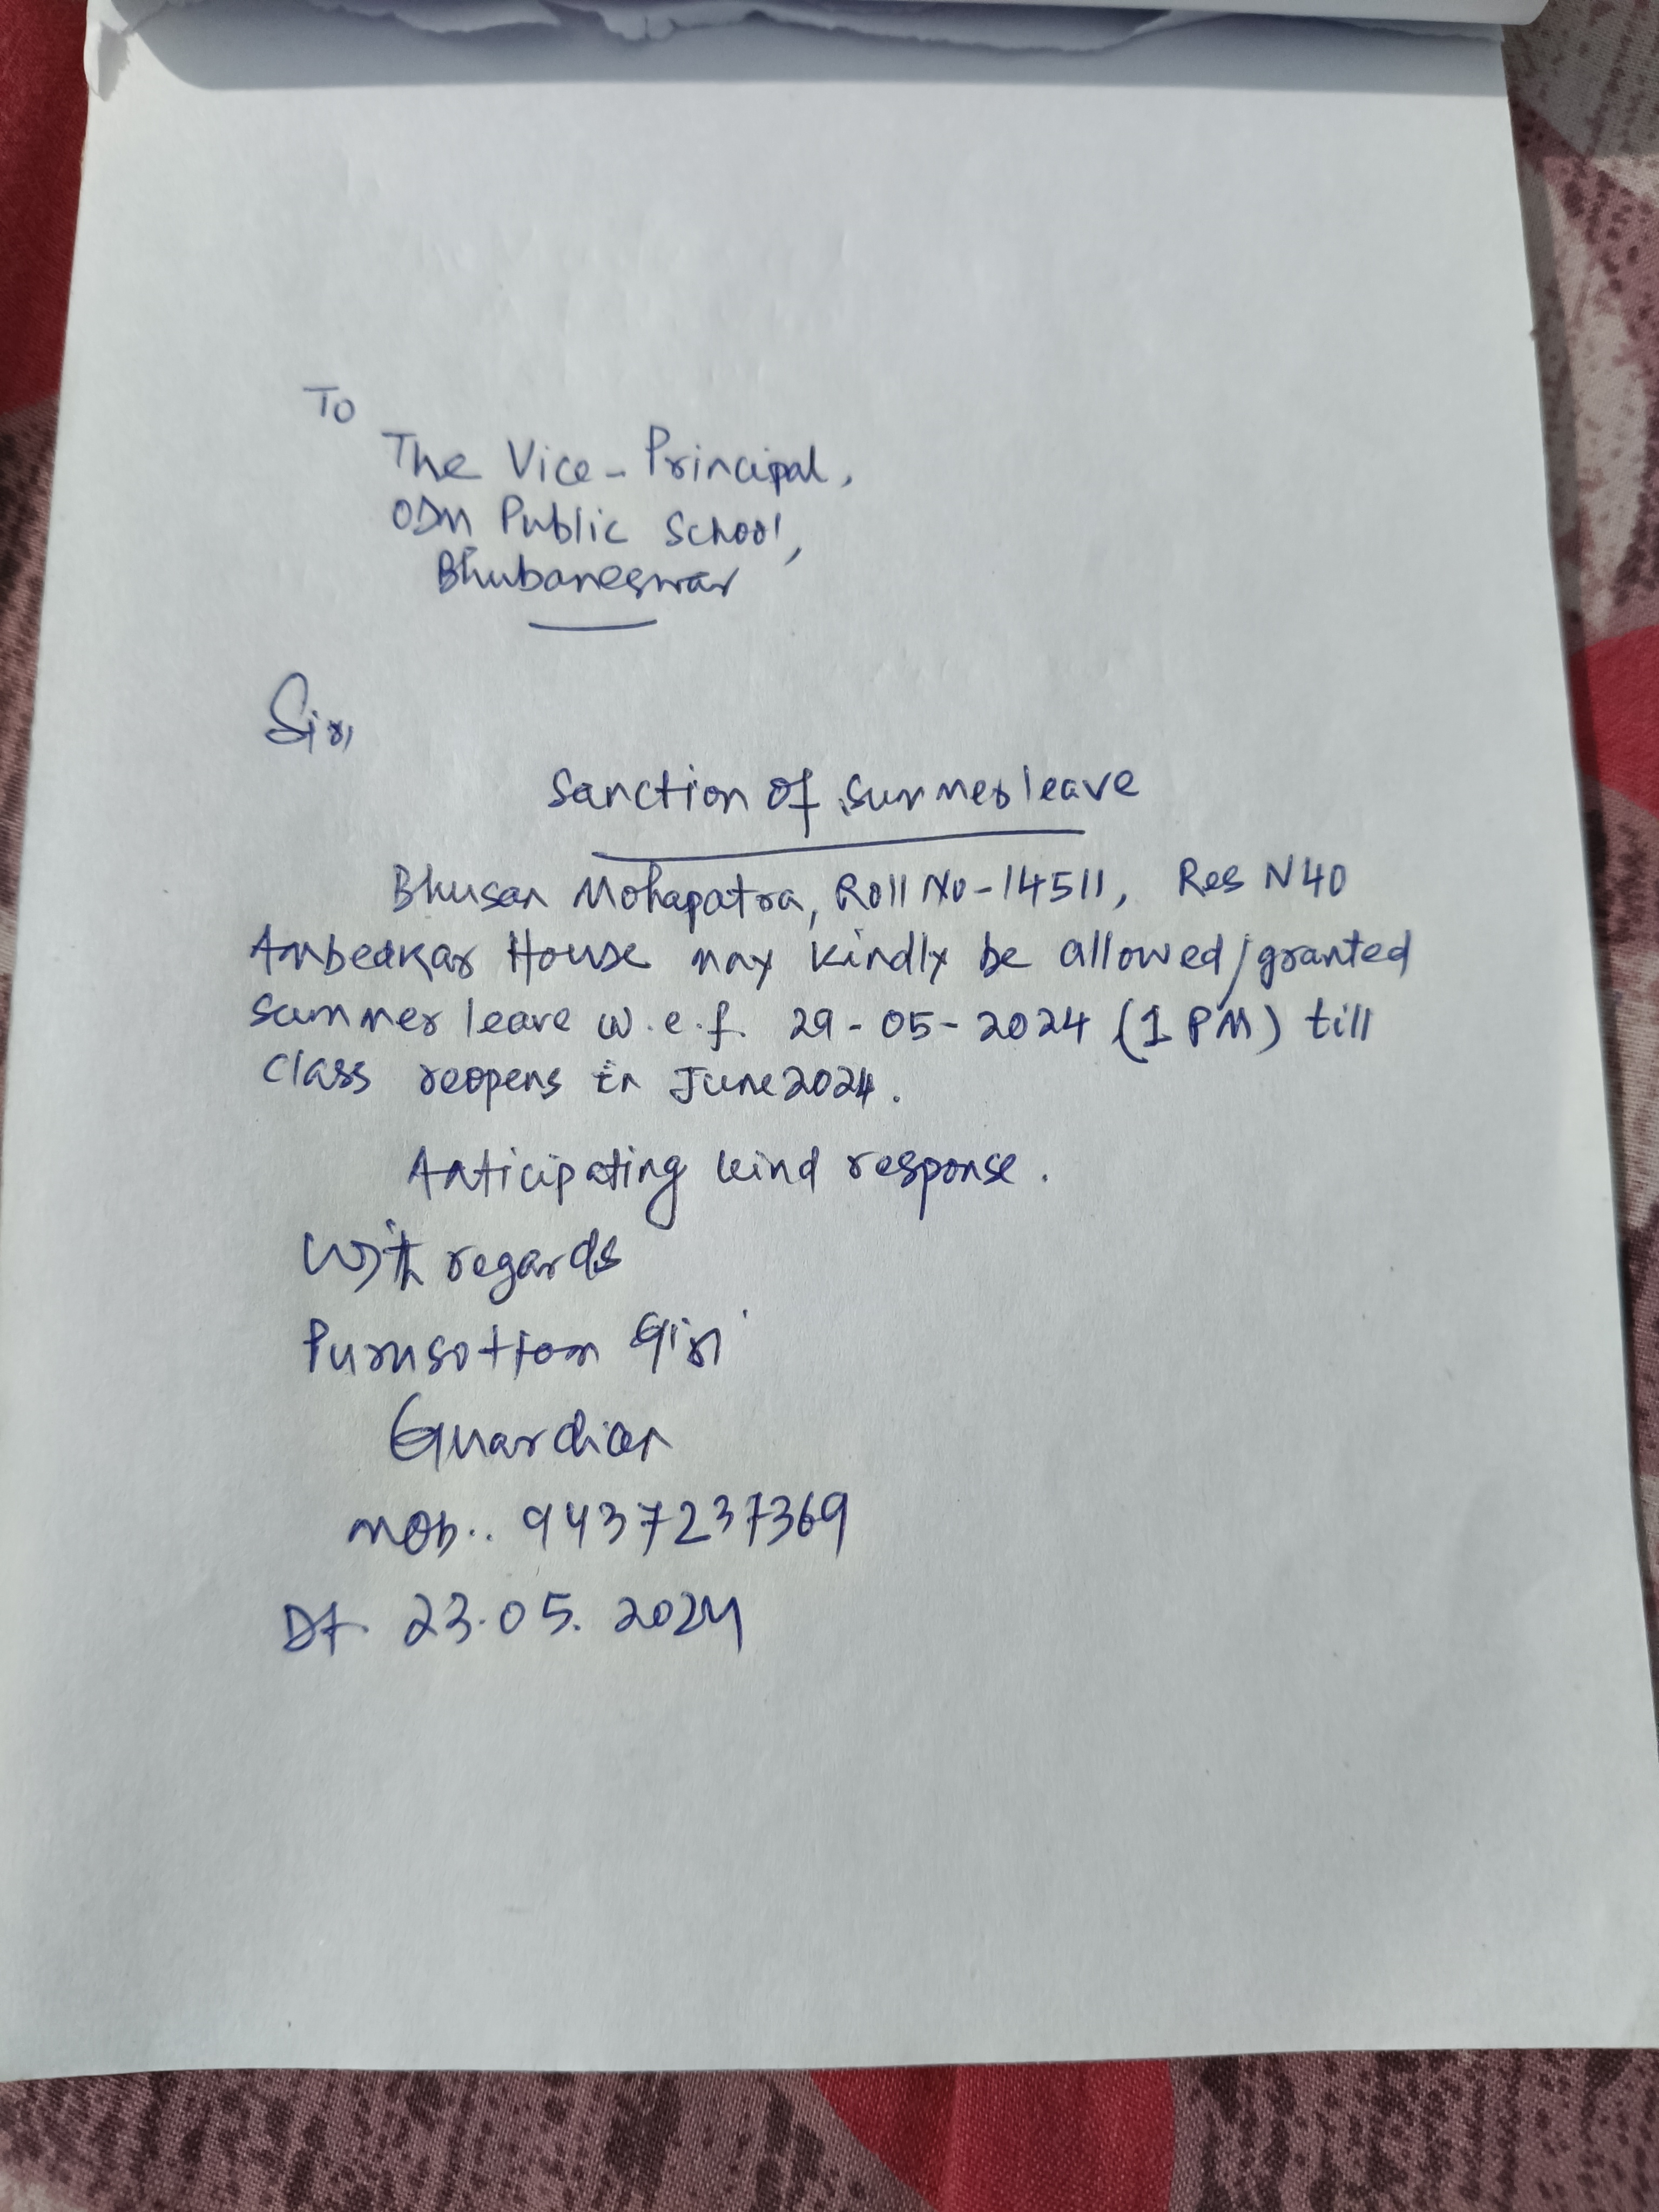 To
The Vice-Principal,
ODM Public School,
Bhubaneswar
Sir,
Sanction of Summer leave
Bhusan Mohapatra, Roll No-14511, Res N40
Ambedkar House may kindly be allowed/granted
Summer leave w.e.f. 29-05-2024 (1 PM) till
Class reopens in June 2024.
Anticipating kind response.
With regards
Purusottam Giri
Guardian
Mob.. 9437237369
Dt 23.05.2024